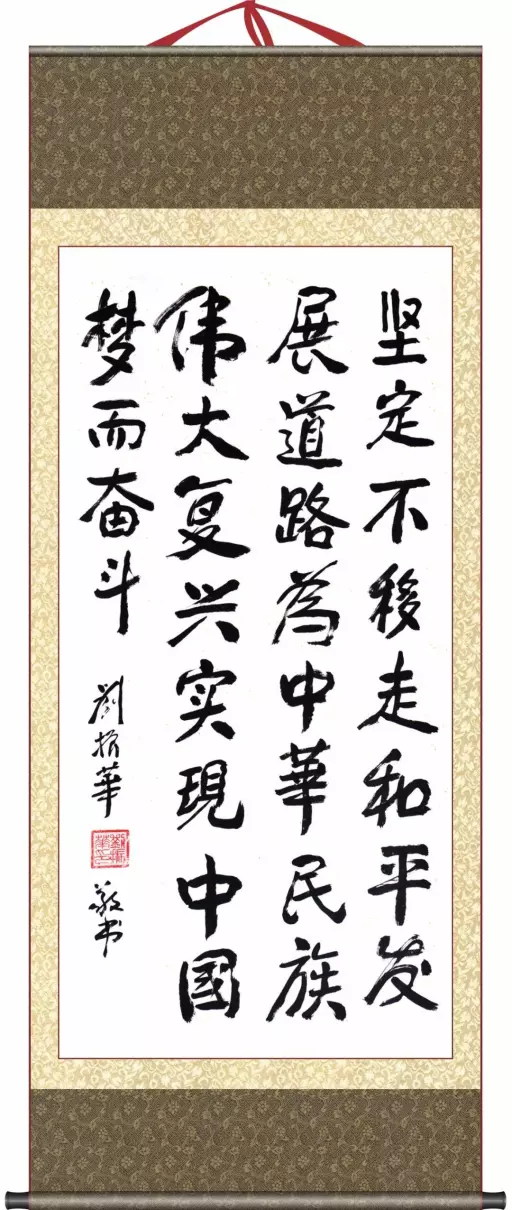 坚定不移走和平发
展道路為中華民族
伟大复兴实現中國
梦而奋斗
劉振華
敬书